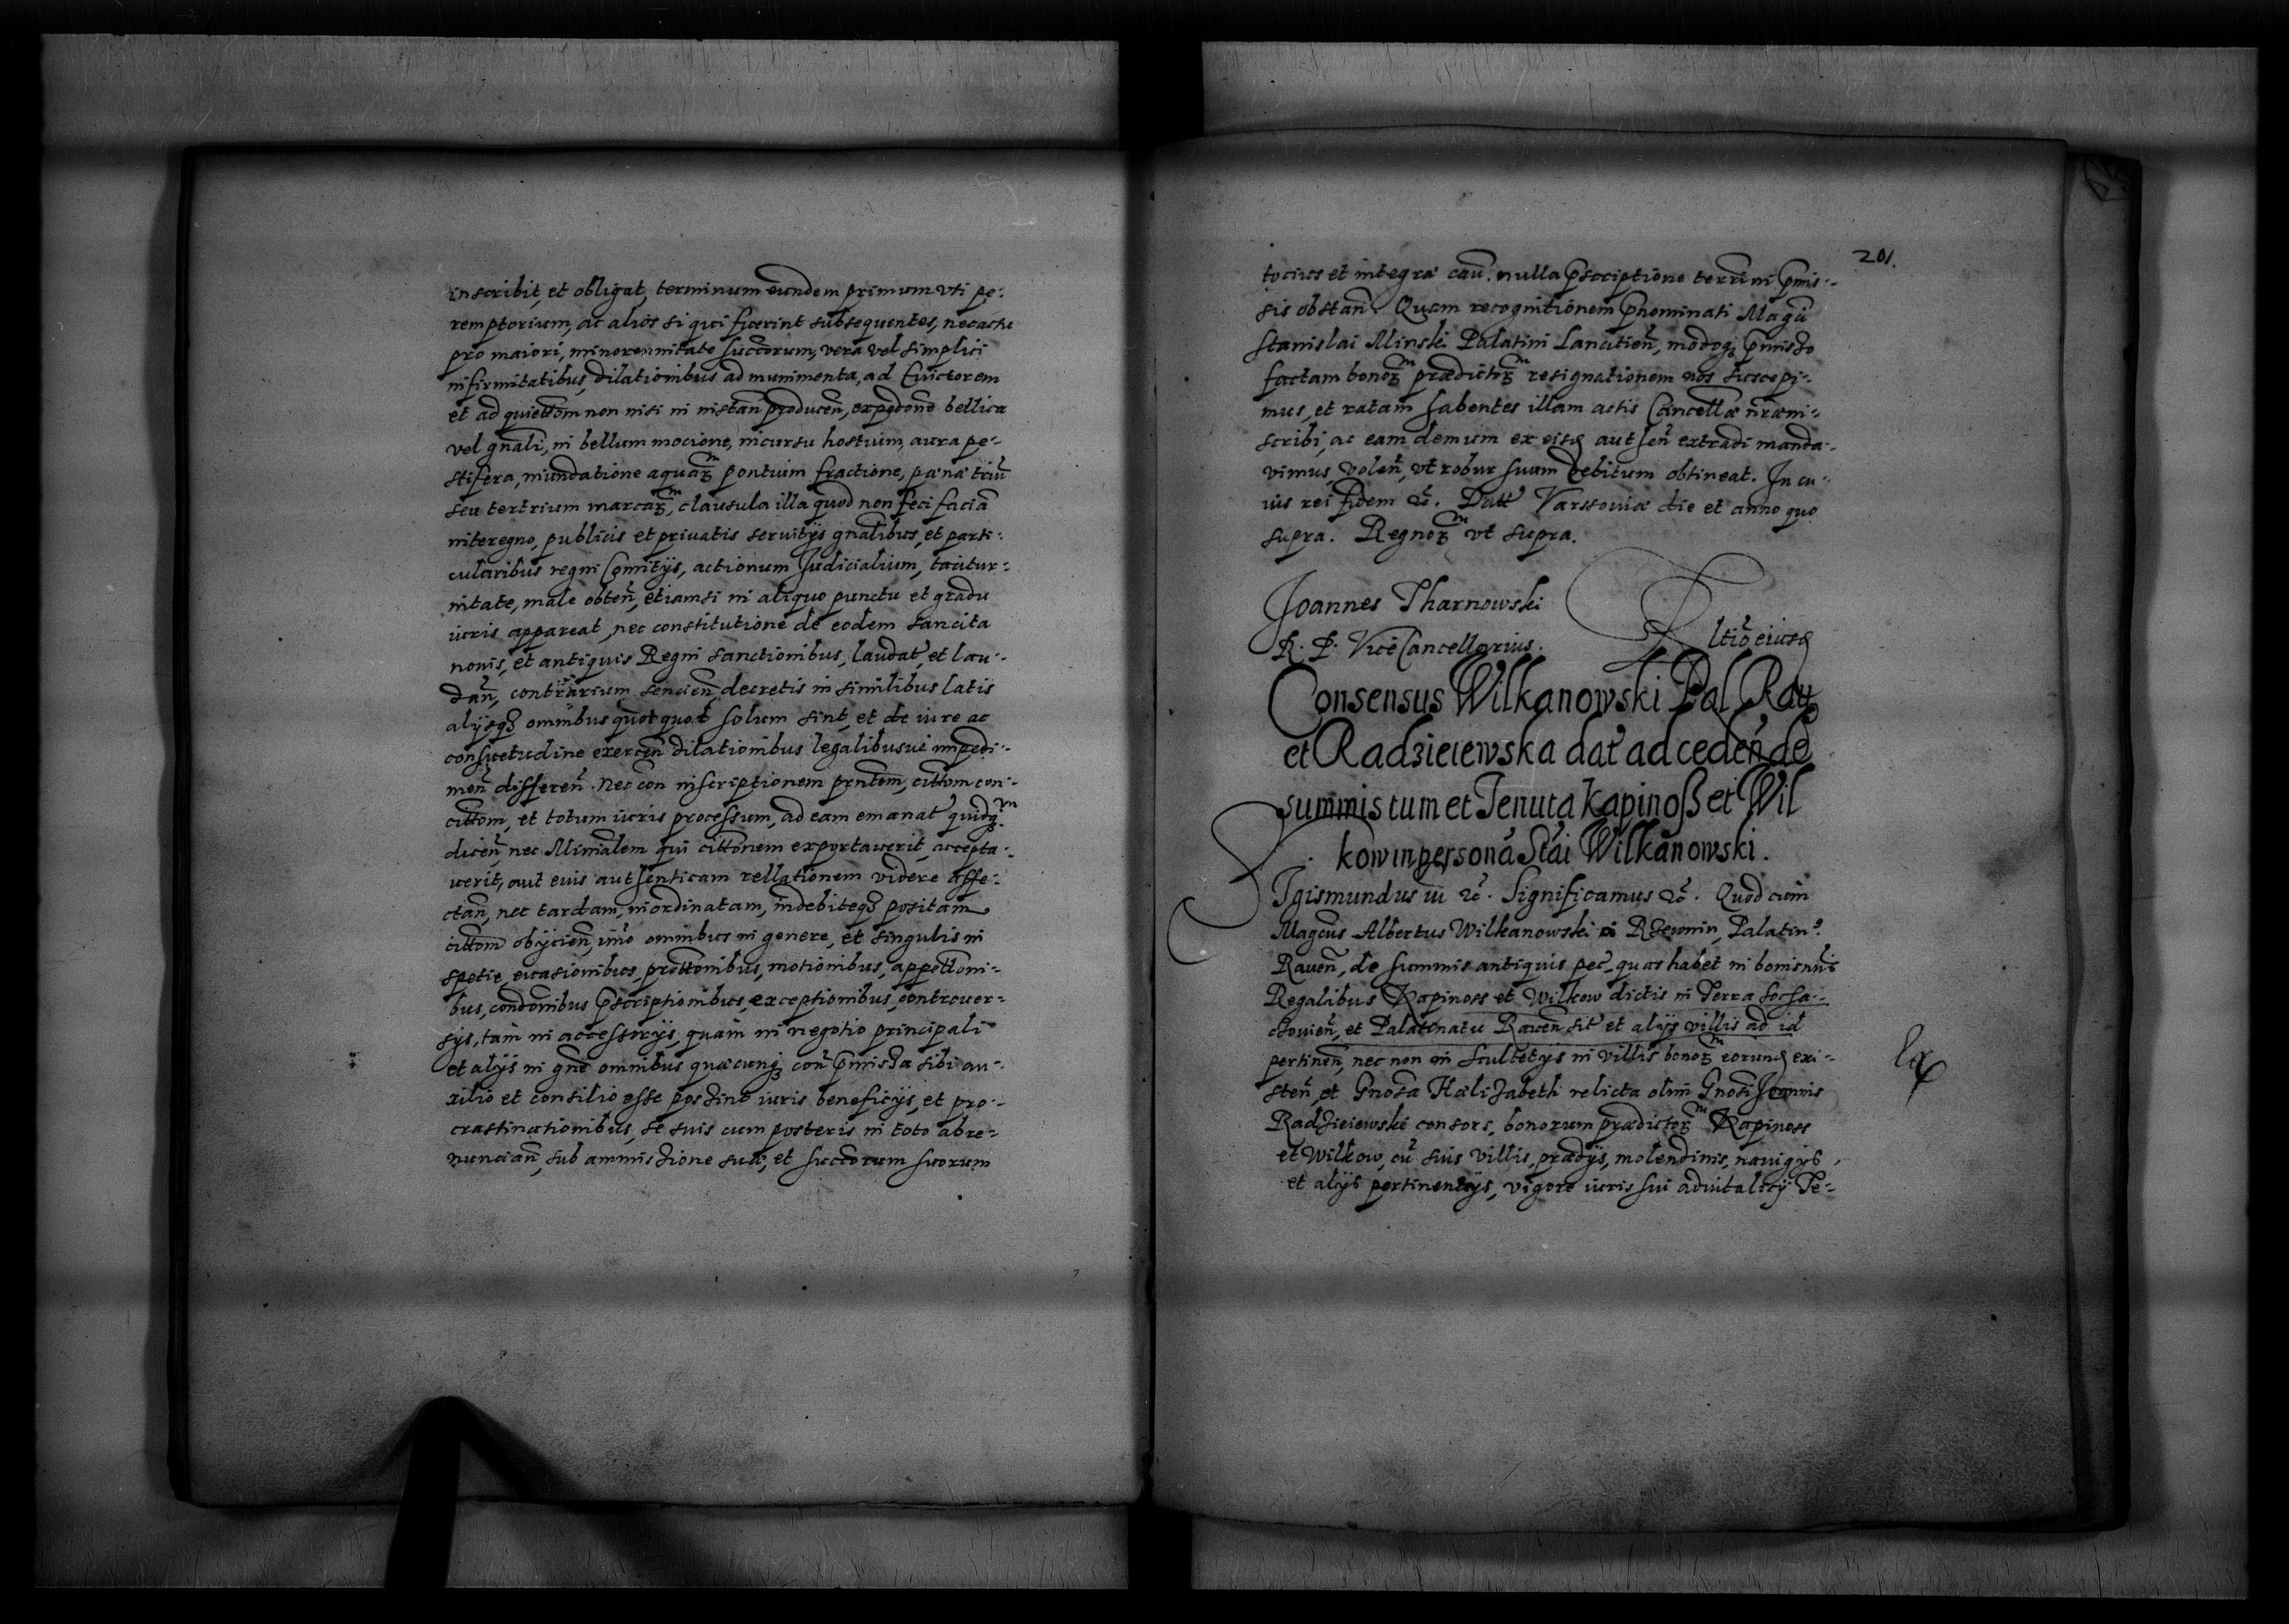 inscribit, et obligat, terminum eundem primum vti pe-
remptorium, ac alios si qui fuerint subsequentes, necache
pro maiori, minorennitate succorum, vera vel simplici
infirmitatibus, dilationibus ad munimenta, ad Evictorem
et ad quiettom non nisi in instan producen, expedone bellica
vel gnali, in bellum mocione, incursu hostium, aura pe-
stifera, inundatione aquarum pontium fractione, pana triu
seu tertrium marcarum, clausula illa quod non feci facia
interegno, publicis et priuatis seruitys gnalibus, et parti-
cularibus regni Comitys, actionum Judicialium, tacitur-
nitate, male obten, etiamsi in aliquo punctu et gradu
iuris appareat, nec constitutione de eodem sancita
nouis, et antiquis Regni sanctionibus, laudat, et lau-
dan, contrarium sencien, decretis in similibus latis
alysq omnibus quotquot solum sint, et de iure ac
consuetudine exercen dilationibus legalibusue impedi-
men differen. Nec con inscriptionem pntem, cittom con-
cittom, et totum iuris processum, ad eam emanat quidq
dicen, nec Minialem qui cittonem exportauerit, accepta-
uerit, aut euis authenticam rellationem videre affe-
ctan, nec tardam, inordinatam, indebiteq positam
cittom obycien, imo omnibus in genere, et singulis in
spetie, euasionibus, prottonibus, motionibus, appettoni-
bus, condonibus pscriptionibus, exceptionibus, controuer-
sys, tam in accessorys, quam in negotio principali
et alys in gne omnibus quæcunq con pmissa sibi au-
xilio et consilio esse possint iuris beneficys, et pro-
crastinationibus, se suis cum posteris in toto abre-
nuncian, sub ammissione sua, et succorum suorum
201.
tocius et integra cau. nulla pscriptione termini pmis-
sis obstan. Quam recognitionem pnominati Magci
Stanislai Minski Palatini Lancitien, modoq pmisso
factam bonorum prædictorum resignationem nos suscepi-
mus, et ratam habentes illam actis Cancellæ nræ in-
scribi, ac eam demum ex eisd authen extradi manda-
vimus, volent, vt robur suum debitum obtineat. In cu-
ius rei fidem &c. Datt Varssouiæ die et anno quo
supra. Regnorum vt supra.
Joannes Tharnowski
R. P. ViceCancellarius. Rltio eiusd
Consensus Wilkanowski Pal Rau
et Radzieiewska dat ad ceden de
summis tum et Tenuta Kapinoß et Wil
kow in persona Stai Wilkanowski.
Sigismundus iii &c. Significamus &c. Quod cum
Magcus Albertus Wilkanowski Palatin9
Rauen, de summis antiquis pec, quas habet in bonis nris
Regalibus Kapinoss et Wilkow dictis in Terra Socha-
chouien, et Palatinatu Rauen sit et alys villis ad id
pertinen, nec non in Scultetys in villis bonorum eorund exi-
sten, et Gnosa Halizabeth relicta olim Gnosi Joannis
Radzieiewski consors, bonorum prædictorum Kapinoss
et Wilkow, cu suis villis, prædys, molendinis, nauigys,
et alys pertinentys, vigore iuris sui aduitalicy Te-